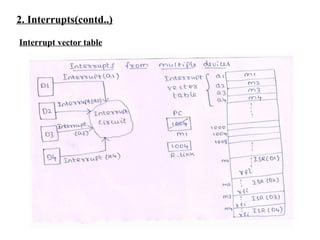 2. Interrupts(contd..)
Interrupt vector table
Interrupts from multiple devices
Interrupt(a1)
D1
Interrupt(a2)
D2
Interrupt
circuit
Interrupt
D3
(a3)
D4
Interrupt (a4)
Interrupt
vector
table
a1
a2
a3
a4
m1
m2
m3
m4
PC
1004
m1
1004
R.link
1000
1004
1008
m1
ISR(D1)
rfi
m2
ISR(D2)
rfi
m3
ISR(D3)
rfi
m4
ISR(D4)
rfi